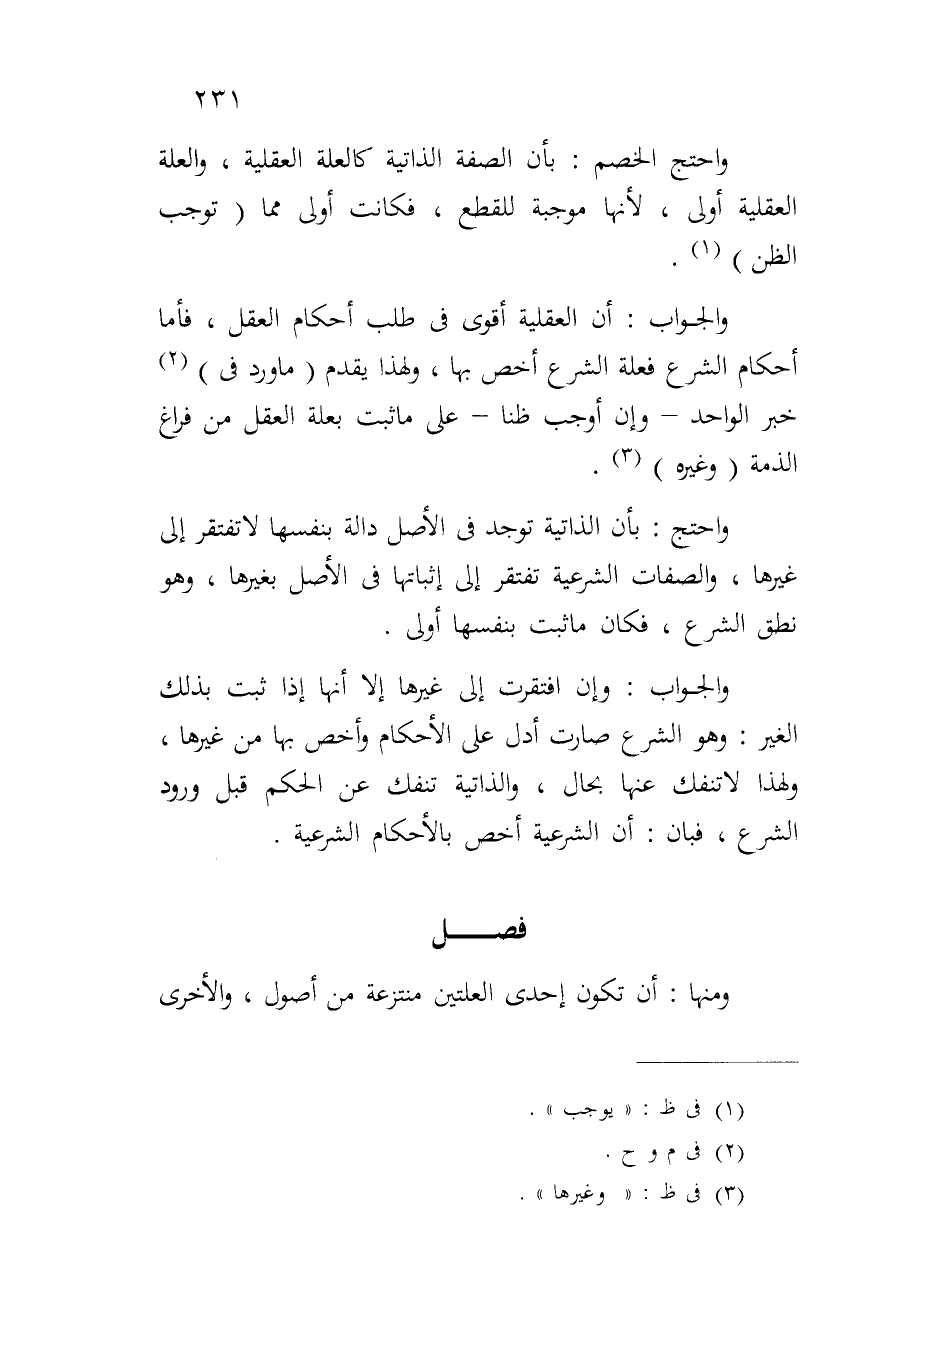 ٢٣١
واحتج الخصم : بأن الصفة الذاتية كالعلة العقلية ، والعلة
العقلية أولى ، لأنها موجبة للقطع ، فكانت أولى مما ( توجب
الظن ) (١) .
والجواب : أن العقلية أقوى فى طلب أحكام العقل ، فأما
أحكام الشرع فعلة الشرع أخص بها ، ولهذا يقدم ( ماورد فى ) (٢)
خبر الواحد – وإن أوجب ظنا – على ماثبت بعلة العقل من فراغ
الذمة ( وغيره ) (٣) .
واحتج : بأن الذاتية توجد فى الأصل دالة بنفسها لاتفتقر إلى
غيرها ، والصفات الشرعية تفتقر إلى إثباتها فى الأصل بغيرها ، وهو
نطق الشرع ، فكان ماثبت بنفسها أولى .
والجواب : وإن افتقرت إلى غيرها إلا أنها إذا ثبت بذلك
الغير : وهو الشرع صارت أدل على الأحكام وأخص بها من غيرها ،
ولهذا لاتنفك عنها بحال ، والذاتية تنفك عن الحكم قبل ورود
الشرع ، فبان : أن الشرعية أخص بالأحكام الشرعية .
فصـــــل
ومنها : أن تكون إحدى العلتين منتزعة من أصول ، والأخرى
(١) فى ظ : « يوجب » .
(٢) فى م و ح .
(٣) فى ظ : « وغيرها » .